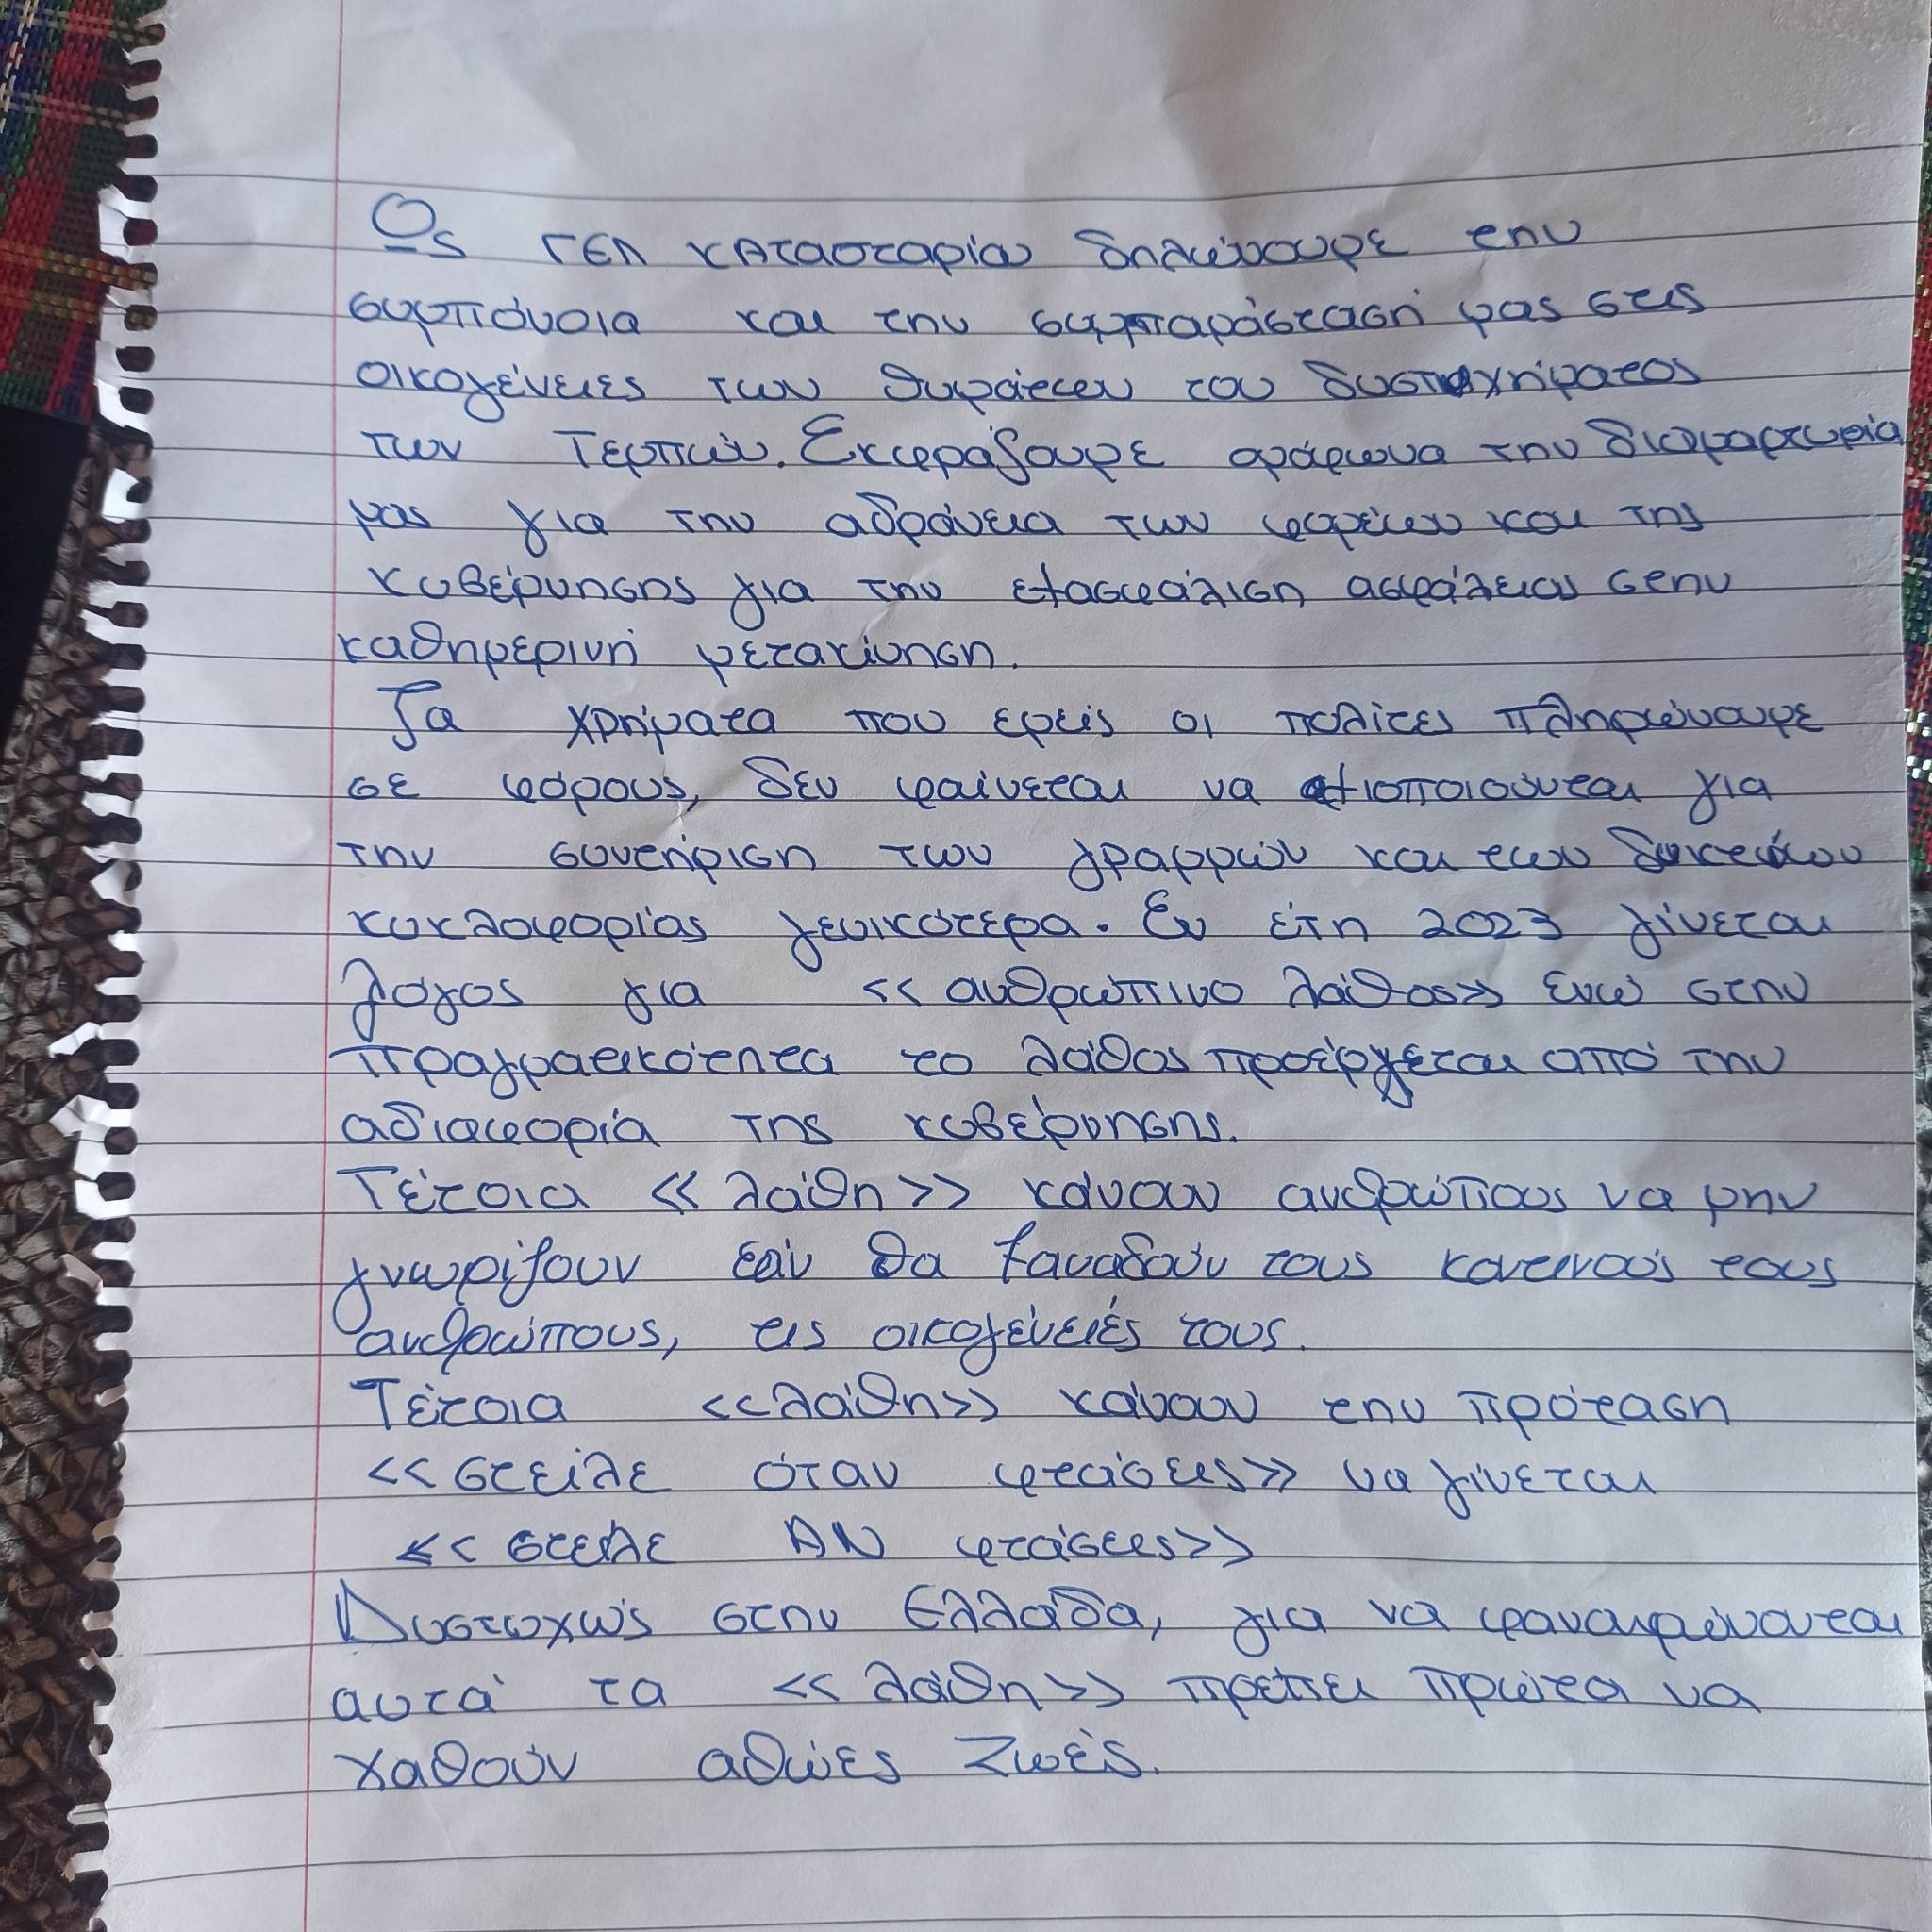 Ως ΓΕΛ Κατασταρίου δηλώνουμε την
συμπόνοια και την συμπαράστασή μας στις
οικογένειες των θυμάτων του δυστυχήματος
των Τεμπών. Εκφράζουμε ομόφωνα την διαμαρτυρία
μας για την αδράνεια των φορέων και της
κυβέρνησης για την εξασφάλιση ασφάλειας στην
καθημερινή μετακίνηση.
Τα χρήματα που εμείς οι πολίτες πληρώνουμε
σε φόρους, δεν φαίνεται να αξιοποιούνται για
την συντήριση των γραμμών και των δικτύων
κυκλοφορίας γενικότερα. Εν έτη 2023 γίνεται
λόγος για << ανθρώπινο λάθος>> ενώ στην
πραγματικότητα το λάθος προέρχεται από την
αδιαφορία της κυβέρνησης.
Τέτοια << λάθη>> κάνουν ανθρώπους να μην
γνωρίζουν εάν θα ξαναδούν τους κοντινούς τους
ανθρώπους, τις οικογένειές τους.
Τέτοια <<λάθη>> κάνουν την πρόταση
<<στείλε όταν φτάσεις>> να γίνεται
<< στείλε ΑΝ φτάσεις>>
Δυστυχώς στην Ελλάδα, για να φανερώνονται
αυτά τα << λάθη>> πρέπει πρώτα να
χαθούν αθώες ζωές.